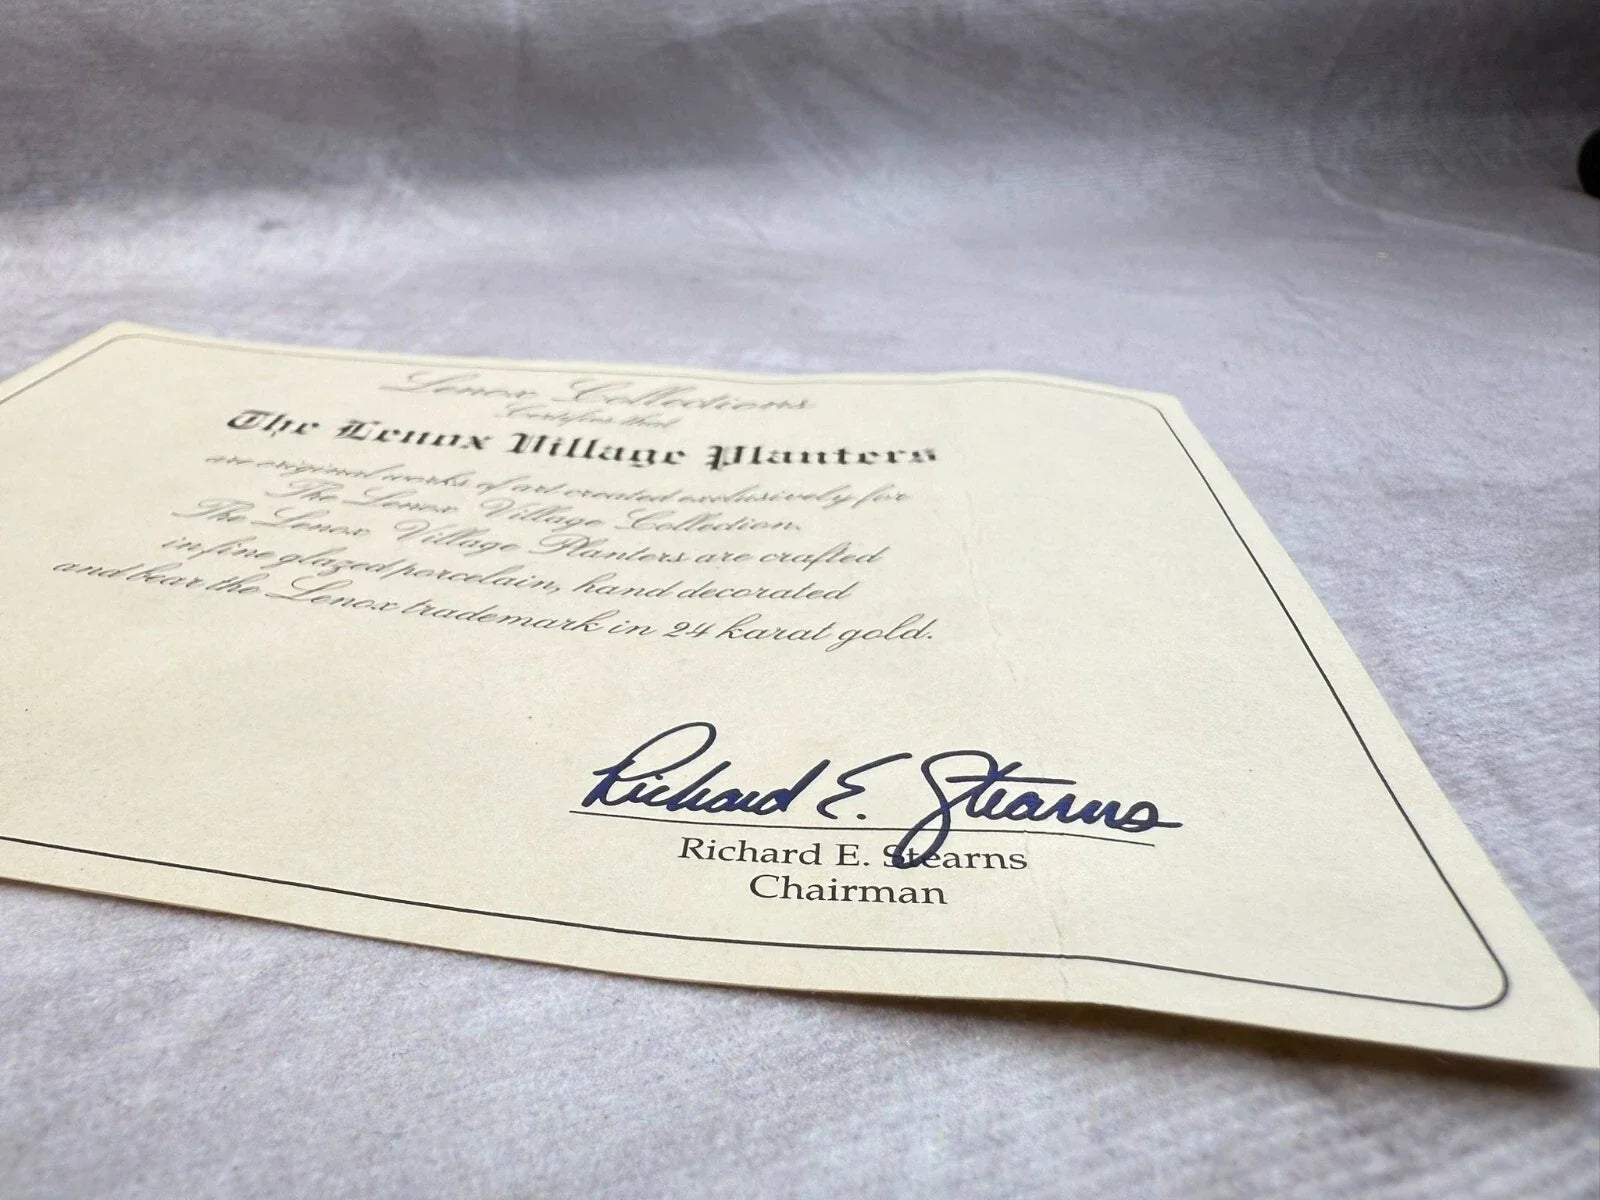 Lenox Collections
Certifies that
The Lenox Village Planters
are original works of art created exclusively for
The Lenox Village Collection.
The Lenox Village Planters are crafted
in fine glazed porcelain, hand decorated
and bear the Lenox trademark in 24 karat gold.
Richard E. Stearns
Richard E. Stearns
Chairman